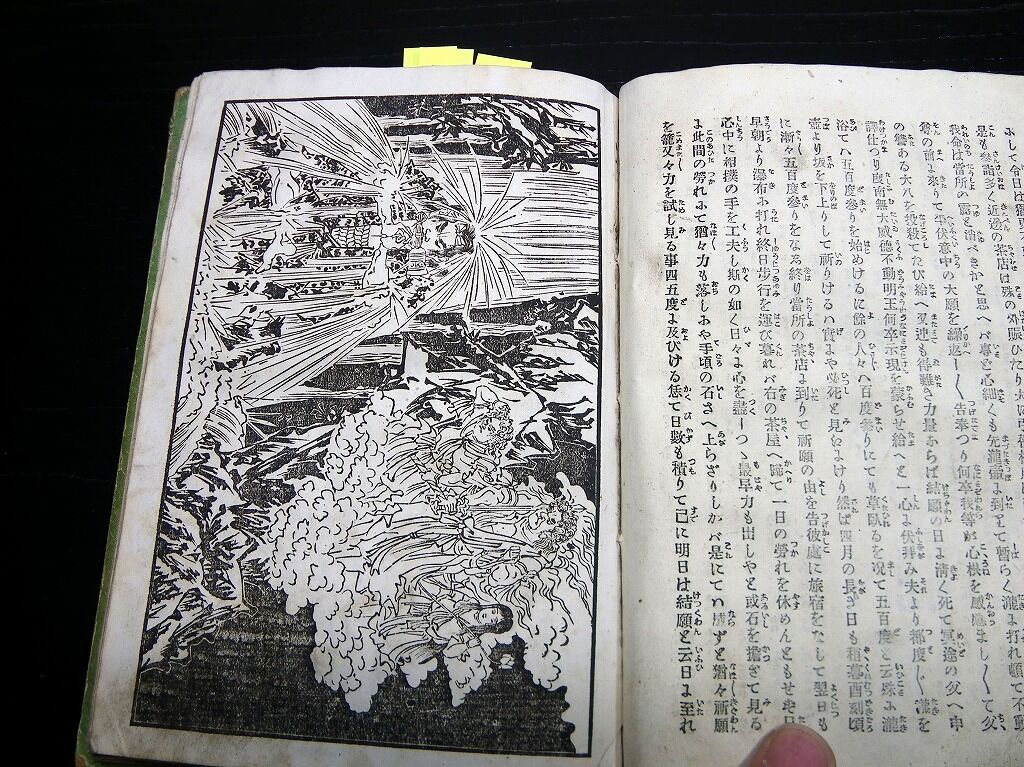 是も參詣多く近邊の茶店は殊の外賑ひたり
我命は當所の露と消べきかと思へバ專ら心細くも先瀧壺よ到りて暫らく瀧よ打れ頓て不動
尊の前よ來りて平伏意中の大願を繰返し〳〵告奉つり何卒我等が心根を感應ましく〳〵て父
の讐ある大八を我殺てたび給へ又運も待難き力量あらば結願の日よ淸く死て冥途の父へ申
譯仕つり度南無大威德不動明王何卒示現を蒙らせ給へと一心よ伏拜み夫より都度〳〵瀧を
浴てハ五百度參りを始めけるに餘の人々ハ百度參りにても草臥るを况て五百度と云殊ふ瀧
壺より坂を下上りして祈りけるハ實よや必死と見ゑよけり然ば四月の長き日も稍暮酉刻頃
に漸々五百度參りをなる終り當所の茶店よ到りて祈願の由を告彼處に旅宿をなして翌日も
早朝より瀑布ふ打れ終日步行を運び暮れバ右の茶屋へ歸て一日の勞れを休めんともせず
心中に相撲の手を工夫し斯の如く日々よ心を盡しつゝ最早力も出しやと或石を擔ぎて見る
よ此間の勞れふて猶々力も落しみや手頃の石さへ上らざりしかバ是にてハ成ずと猶々祈願
を籠又々力を試し見る事四五度よ及びける恁て日數も積りて已に明日は結願と云日よ至れ